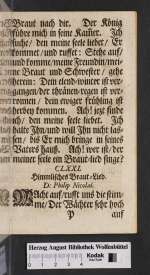 Braut nach dir. Der König
führet mich in seine Kammer. Ich
suche/ den meine seele liebet/ Er
kommet/ und ruffet: Stehe auf/
und komme/ meine Freundin/mei-
ne Braut und Schwester/ gehe
herein: Dein elend-winter ist ver-
gangen/der thränen-regen ist ver-
ronnen/ dein ewiger frühling ist
herbey kommen. Ach! jetz finde
ich doch/ den meine seele liebet. Ich
halte Ihn/und will Ihn nicht las-
sen/ biß Er mich bringe in seines
Vaters hauß. Ach! wo ist der
meiner seele ein Braut-lied singe?
CLXXI.
Himmlisches Braut-Lied.
D. Philip Nicolai.
WAch auf/rufft uns die stim-
me/ Der Wächter sehr hoch
P auf
Herzog August Bibliothek Wolfenbüttel